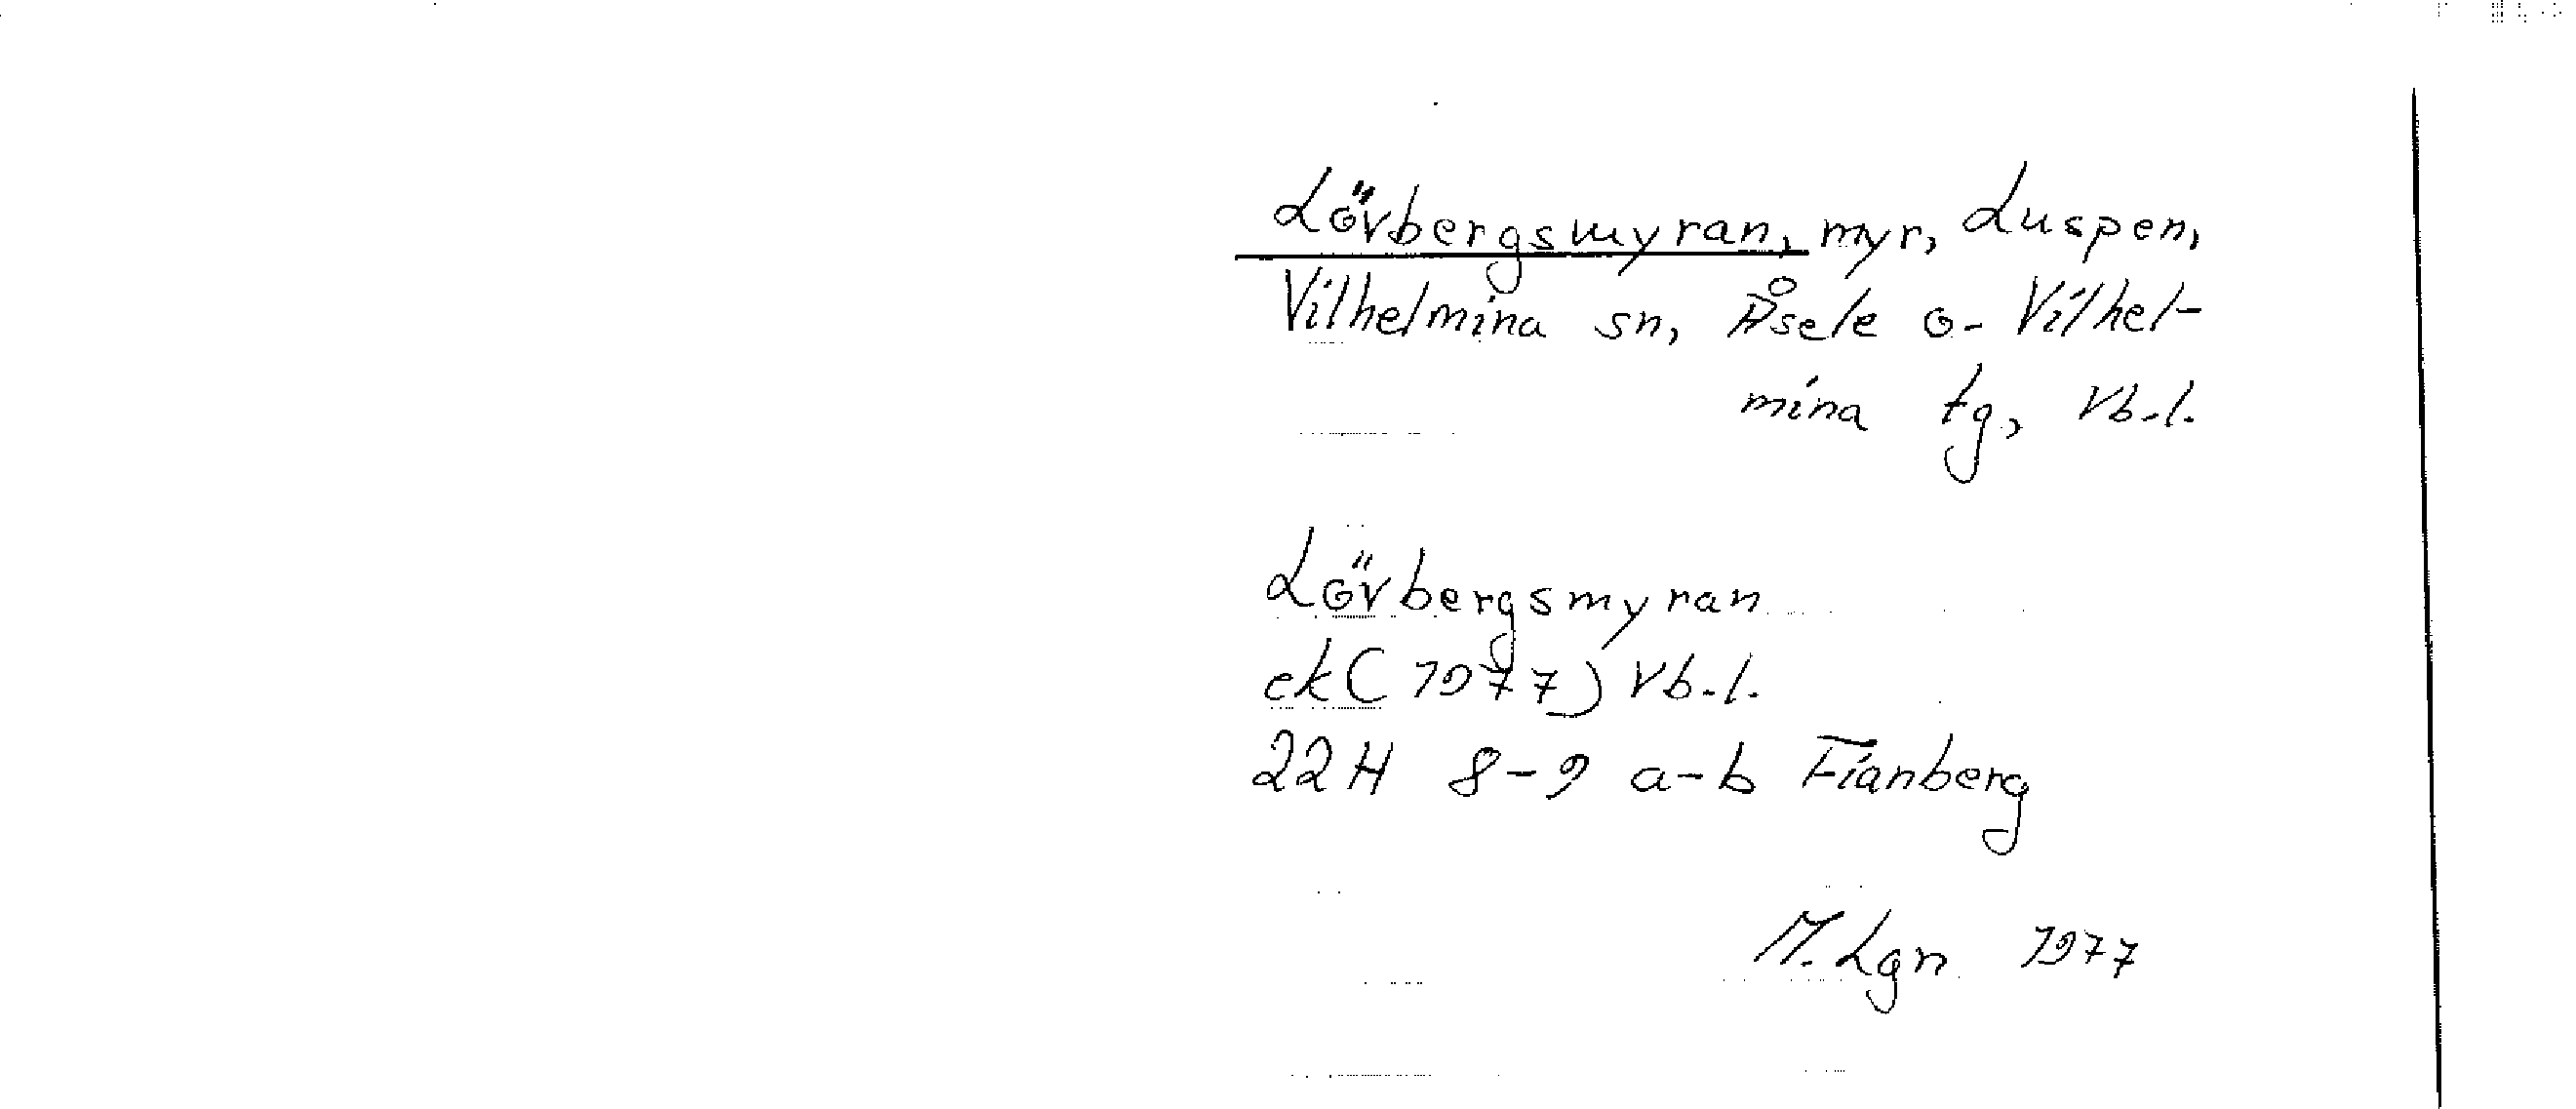 Lövbergsmyran, myr, Luspen,
Vilhelmina sn, Åsele o- Vilhel-
mina tg, Vb.l.
Lövbergsmyran
ek (1977) Vb.l.
22H 8-9 a-b Fianberg
M. Lgn 1977